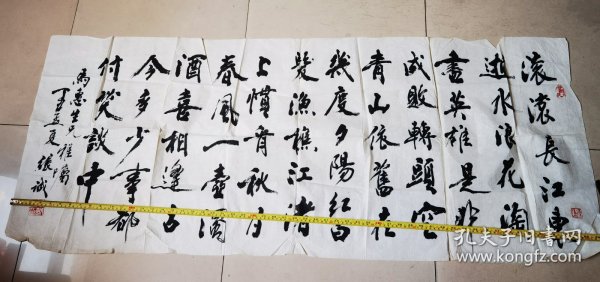 滚滚長江東
逝水浪花淘
盡英雄是非
成敗轉頭空
青山依舊在
幾度夕陽紅白
髮漁樵江渚
上慣看秋月
春風一壺濁
酒喜相逢古
今多少事都
付笑談中
為惠生兄雅囑
丁丑夏 張誠
孔夫子旧书网
kongfz.com